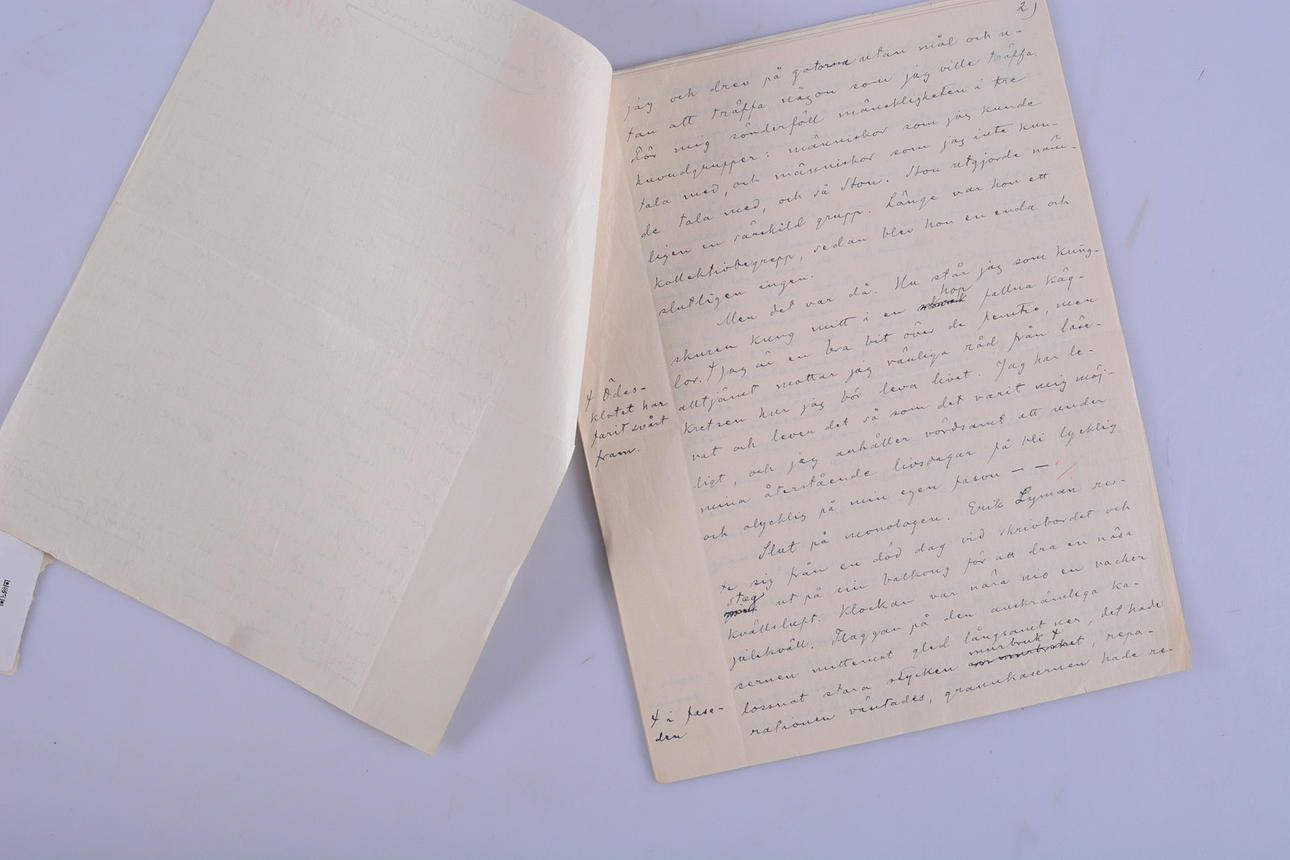 2)
jag och drev på gatorna utan mål och u-
tan att träffa någon som jag ville träffa.
För mig sönderföll mänskligheten i tre
huvudgrupper: människor som jag kunde
tala med, och människor som jag inte kun-
de tala med, och så Hon. Hon utgjorde näm-
ligen en särskild grupp. Länge var hon ett
kollektivbegrepp, sedan blev hon en enda och
slutligen ingen.
Men det var då. Nu står jag som kung-
hop
skuren kung mitt i en fallna käg-
lor. ‡ Jag är en bra bit över de femtio, men
alltjämt mottar jag vänliga råd från läse-
kretsen hur jag bör leva livet. Jag har le-
vat och lever det så som det varit mig möj-
ligt, och jag anhåller vördsamt att under
mina återstående livsdagar få bli lycklig
och olycklig på min egen fason — —
‡ Ödes-
klotet har
farit svårt
fram.
Slut på monologen. Erik Lyman res-
te sig från en död dag vid skrivbordet och
steg
ut på sin balkong för att dra en näsa
kvällsluft. Klockan var nära nio en vacker
julikväll. Flaggan på den anskrämliga ka-
sernen mittemot gled långsamt ner, det hade
murbruk ‡
lossnat stora stycken , repa-
rationen väntades, grannkasernen hade re-
‡ i fasa-
den